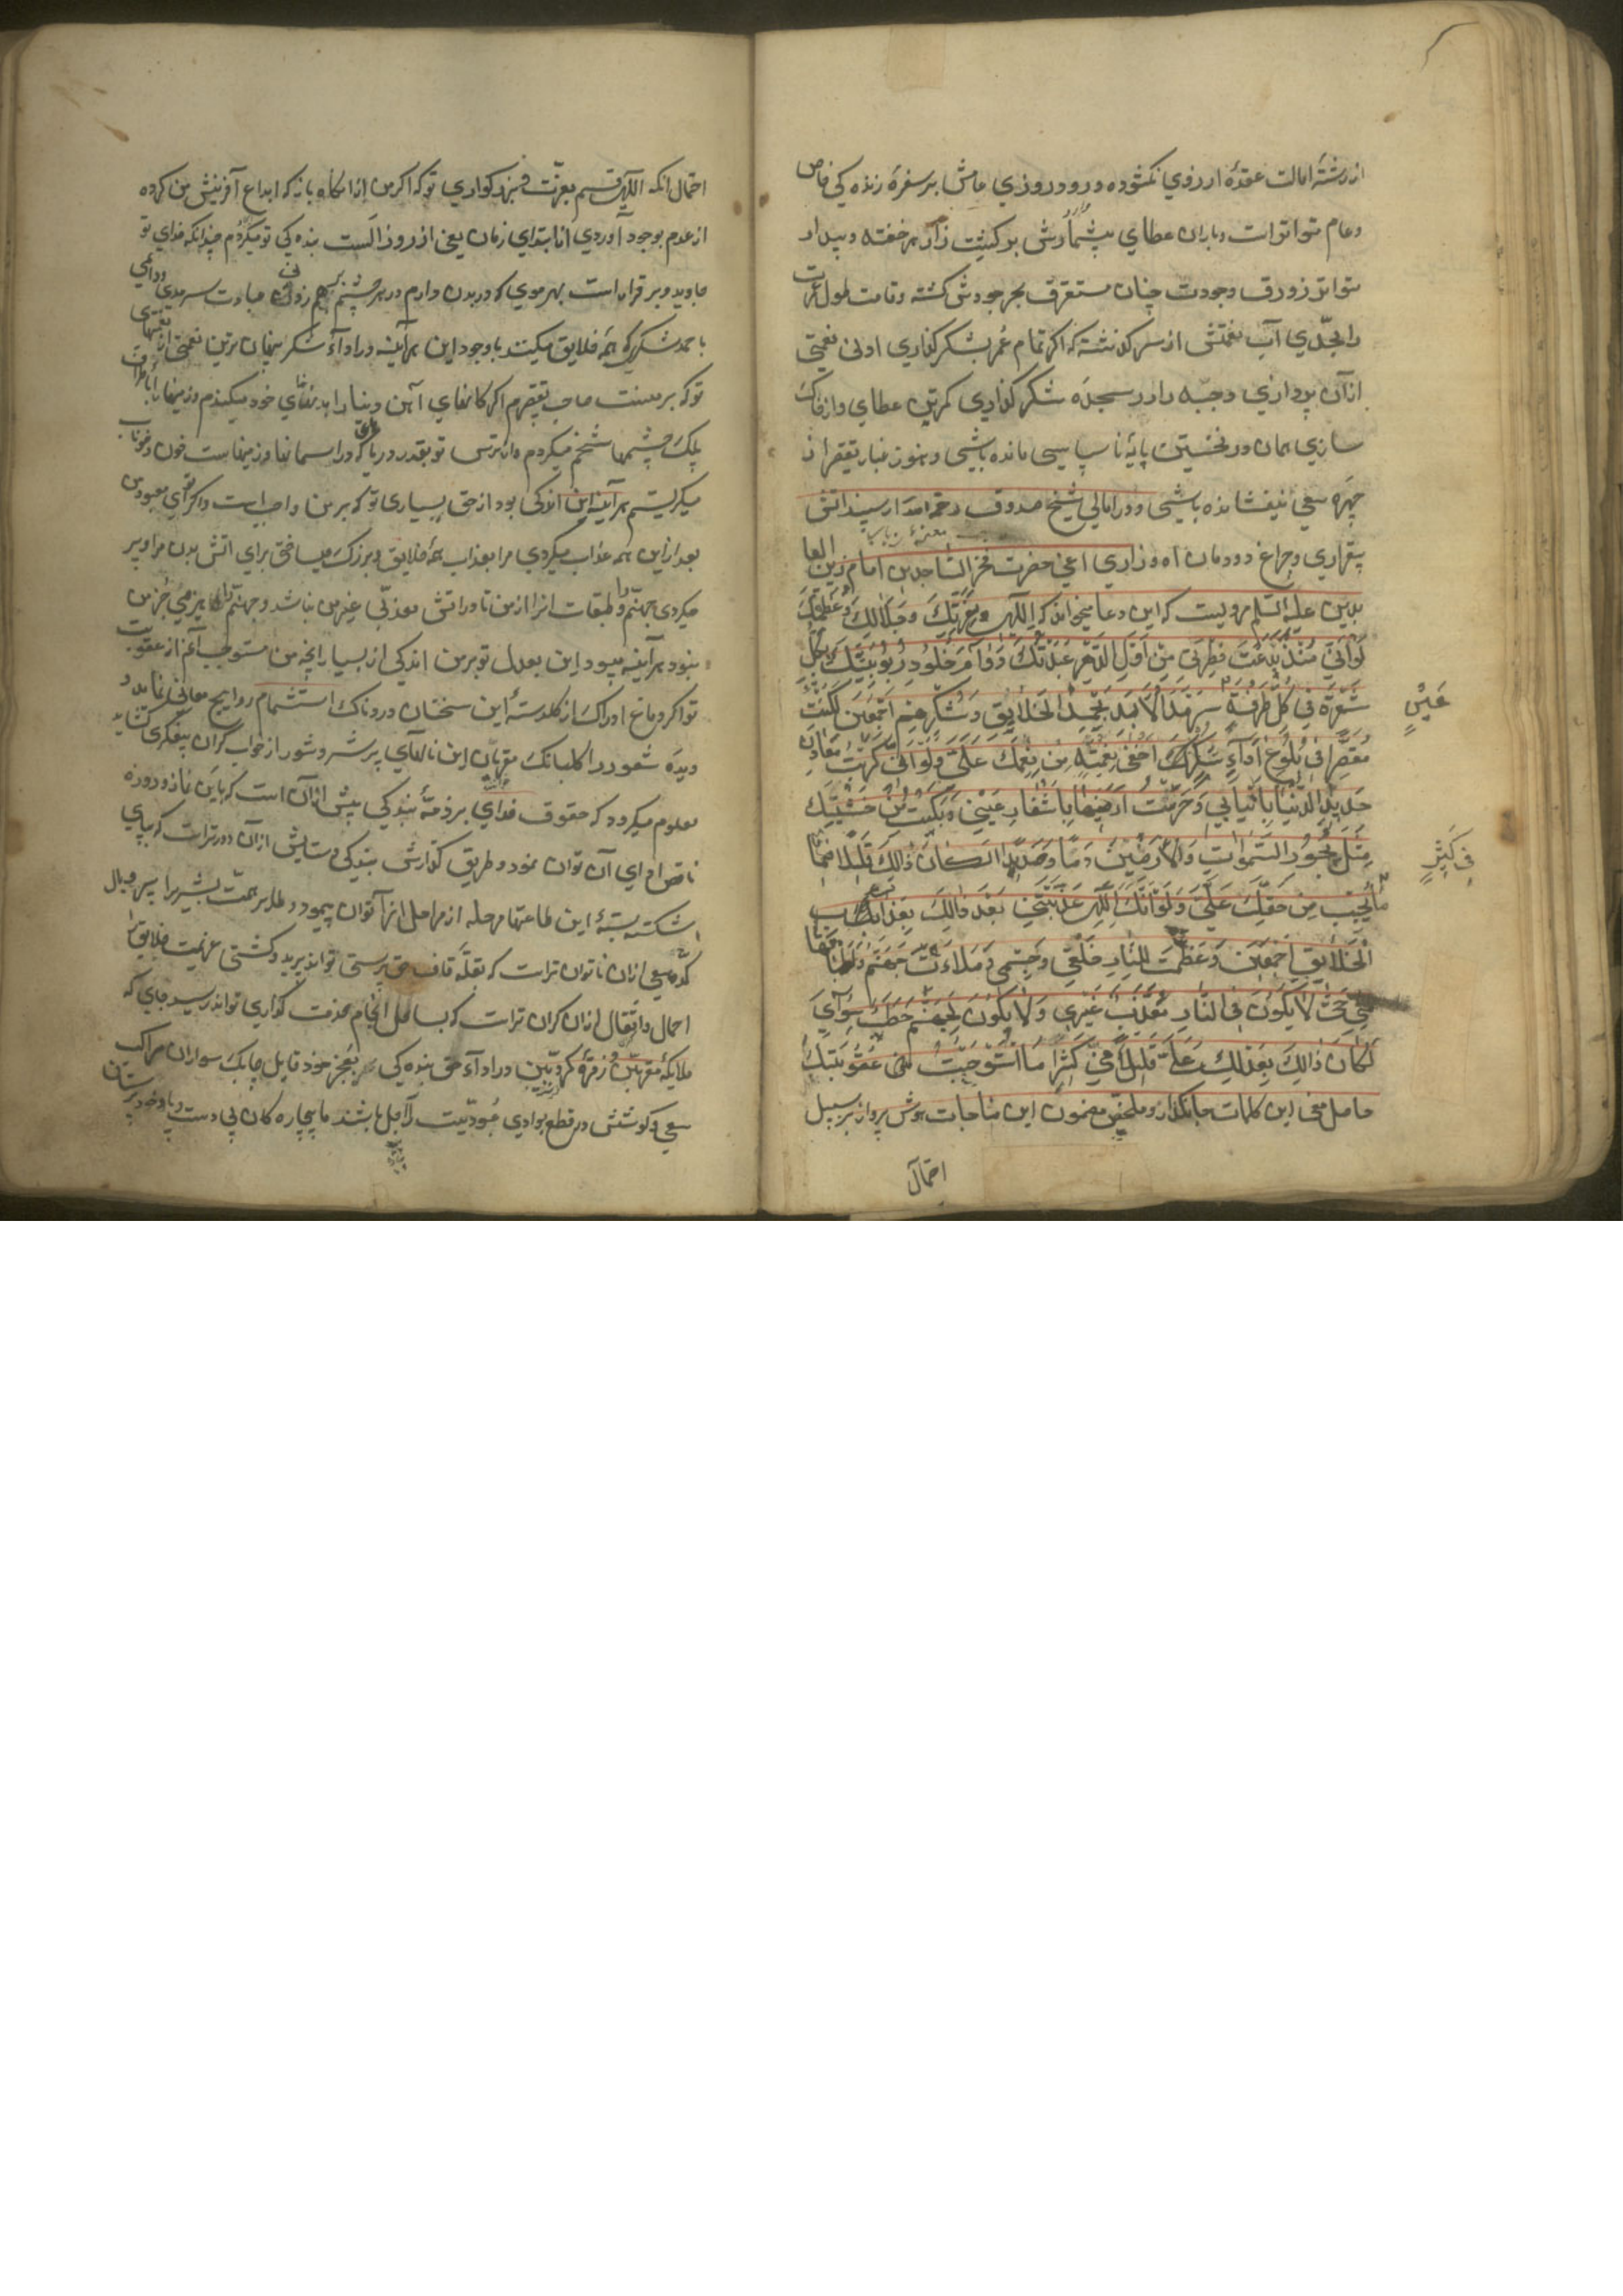 از رشتهٔ امالت عقدهٔ ارزوي نکشوده ورود روزي عامش بر سفرهٔ زنده کی خاص
وعام متواتر است وباران عطاي بیشمارش بر کشت زار هر خفته وبیدار
متواتر زورق وجودت چنان مستغرق بحر جودش کشته وقامت طول عمرت
را بحدّي آب نعمتش از سر کذشته که اکر تمام عُمر بشکر کذاري ادنی نعمتی
از آن پردازي وجبهه را در سجدهٔ شکر کذاري کمترین عطاي او خاك
سازي همان در نخستین پایهٔ ناسپاسی مانده باشی وهنوز غبار تقصیر از
چهرهٔ سعی نیفشانده باشی ودر امالي شیخ صدوق رحمه الله از سپند اتش
بیقراري وچراغ دودمان آه وزاري اعنی حضرت فخر السّاجدین امام زین العا
بدین علیه السّلم مرویست که این دعا میخوانده که اِلٰهي وَعِزَّتِكَ وَجَلَالِكَ وَعَظَمَتِكَ
لَوْ اَنّي مُنْذُ بَدَعْتَ فِطْرَتي مِنْ اَوَّلِ الدَّهْرِ عَبَدْتُكَ دَوَامَ خُلُودِ رُبُوبِیَّتِكَ بِکُلِّ
شَعْرَةٍ في کُلِّ طَرْفَةِ سَرْمَدَ الْاَبَدِ بِحَمْدِ الْخَلَایِقِ وَشُکْرِهِمْ اَجْمَعینَ لَکُنْتُ
عَیْنٍ
مُقَصِّراً في بُلُوغِ اَدَاءِ شُکْرِ اَخْفیٰ نِعْمَةٍ مِنْ نِعَمِكَ عَلَيَّ وَلَوْ اَنّي کَرَبْتُ مَعَادِنَ
حَدیدِ الدُّنْیَا بِاَنْیَابي وَحَرَثْتُ اَرَضیهَا بِاَشْفَارِ عَیْني وَبَکَیْتُ مِنْ خَشْیَتِكَ
مِثْلَ بُحُورِ السَّمٰوَاتِ وَالْاَرَضینَ دَمًا وَصَدیدًا لَکَانَ ذٰلِكَ قَلیلًا
في کَثیرِ
مَا یَجِبُ مِنْ حَقِّكَ عَلَيَّ وَلَوْ اَنَّكَ اِلٰهي عَذَّبْتَني بَعْدَ ذَالِكَ بِعَذَابِ
الْخَلَایِقِ اَجْمَعینَ وَعَظَّمْتَ لِلنَّارِ خَلْقي وَجِسْمي وَمَلَاْتَ جَهَنَّمَ وَاَطْبَاقَهَا
مِنّي حَتّٰی لَا یَکُونَ فِي النَّارِ مُعَذَّبٌ غَیْري وَلَا یَکُونَ لِجَهَنَّمَ حَطَبٌ سِوَايَ
لَکَانَ ذَالِكَ بِعَدْلِكَ عَلَيَّ قَلیلًا في کَثیرِ مَا اسْتَوْجَبْتُ مِنْ عُقُوبَتِكَ
حاصل معنی این کلمات جانکداز وملخّص مضمون این مناجات هوش پرواز بر سبیل
احمال
احمال انکه الٰهي قسم بعزّت وبزرکواري تو که اکر من از انکاه باز که ابداع آفرینش من کرده
از عدم بوجود آوردي از ابتداي زمان یعنی از روز الست بنده کی تو میکردم چندانکه خداي تو
جاوید وبرقرار است بهر موي که در بدن دارم در هر چشم بر هم زدني عبادت سرمدي ودائمی
با حمد وشکري که همهٔ خلایق میکنند با وجود این هر آینه در اداء شکر پنهان ترین نعمتی از نعمتهای
تو که بر منست صاحب تقصیرم اکر کانهاي آهن دنیا را بدندانهاي خود میکندم وزمینها را باطراف
پلك چشمها شخم میکردم واز ترس تو بقدر دریاها که در اسمانها وزمینهاست خون وخوناب
میکریستم هر آینه این اندکی بود از حق بسیاری تو که بر من واجب است واکر تو اي معبود من
بعد از این همه عذاب میکردي مرا بعذاب همهٔ خلایق وبزرك میساختی برای اتش بدن مرا وپر
میکردی جهنّم وطبقات انرا از من تا در اتش معذّبی غیر من نباشد وجهنّم را هیزمي جُز من
نبود هر آینه میبود این بعدل تو بر من اندکی از بسیار انچه من مستوجب آنم از عقوبت
تو اکر دماغ ادراك از کلدستهٔ این سخنان دردناك استشمام روایح معانی نماید و
دیدهٔ شعور را کلبانك مقربان این ناله‌اي پر شر وشور از خواب کران بیفکری کشاید
معلوم میکردد که حقوق خداي بر ذمّهٔ بندکی بیش از آن است که باین نماز وروزه
ناقص ادای آن توان نمود وطریق کذارش بندکی وستایش از آن دورتر است که بپاي
شکسته بستهٔ این طاعتها مرحله از مراحل انرا توان پیمود وطایر همّت بشیر را پر وبال
سعی از ان ناتوان تر است که بقلّهٔ قاف حق پرستی تواند پرید وکشتی عزیمت خلایق را
احمال واثقال از ان کران تر است که بساحل انجام خدمت کذاري تواند رسید جایی که
ملایکهٔ مقرّبین وزمرهٔ کرّوبیین در اداء حق بنده کی بعجز خود قایل وچابك سواران مراکب
سعی وکوشش در قطع بوادي عُبودیّت راجل باشند ما بیچاره کان بی دست وپا